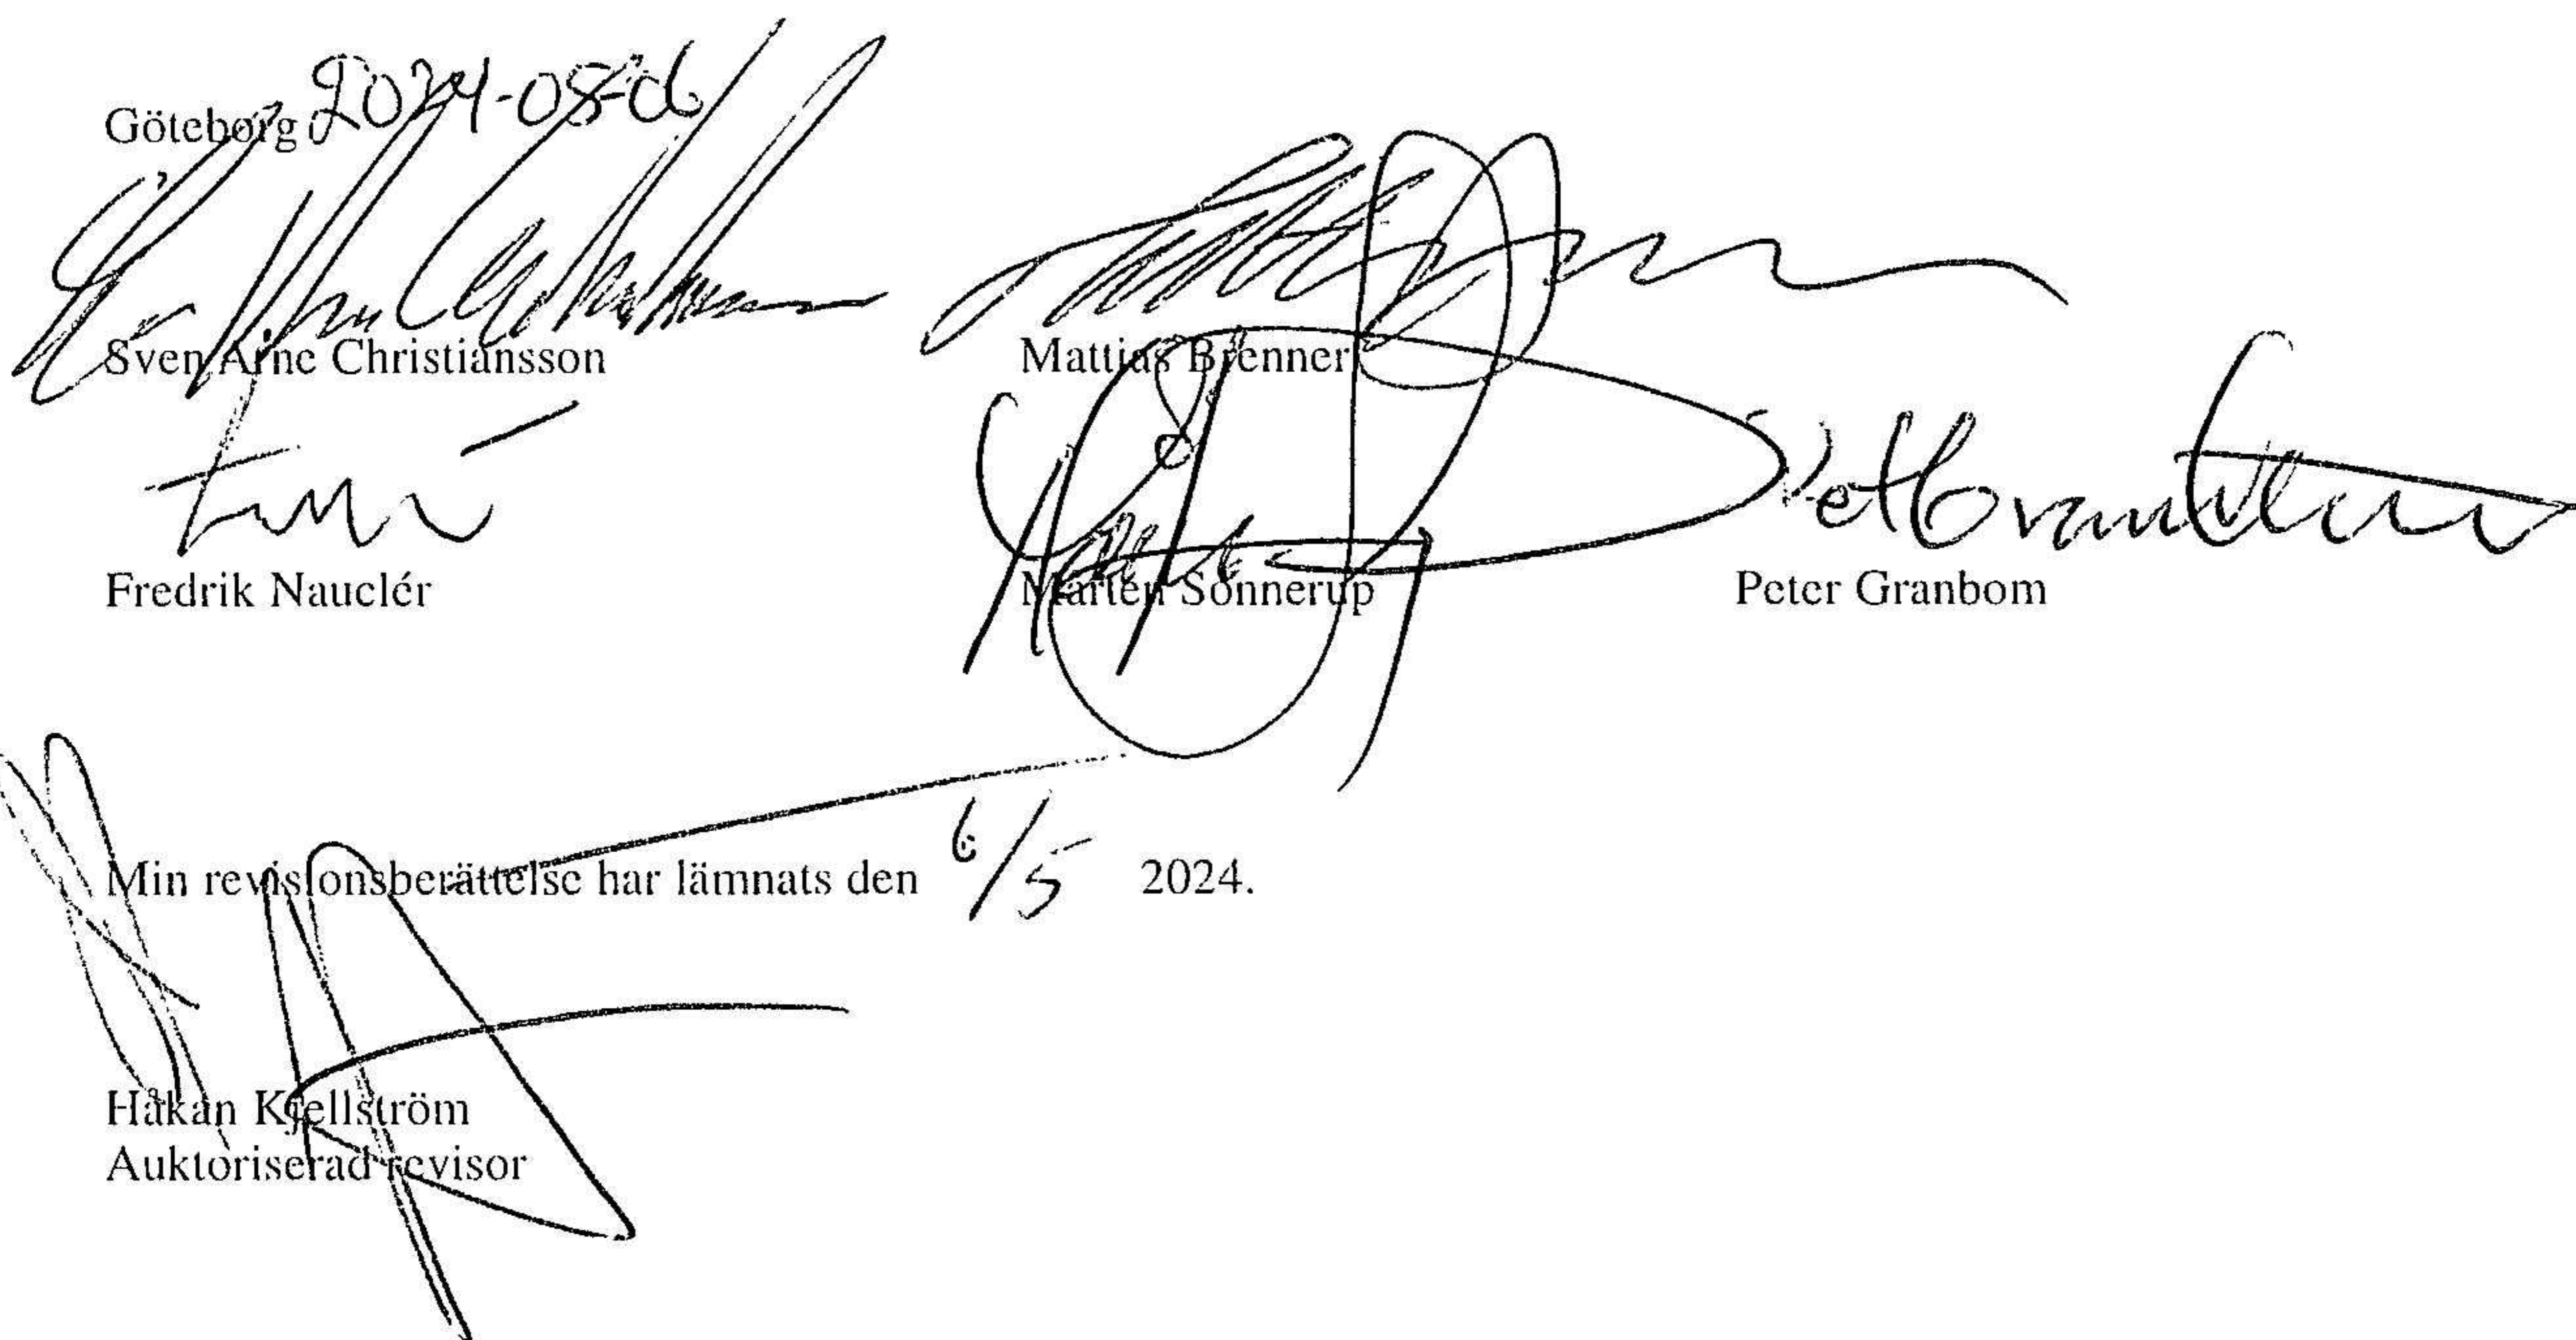 Göteborg 2024-05-06
Sven Arne Christiansson Mattias Brenner
Fredrik Nauclér Mårten Sönnerup Peter Granbom
Min revisionsberättelse har lämnats den 6/5 2024.
Håkan Kjellström
Auktoriserad revisor